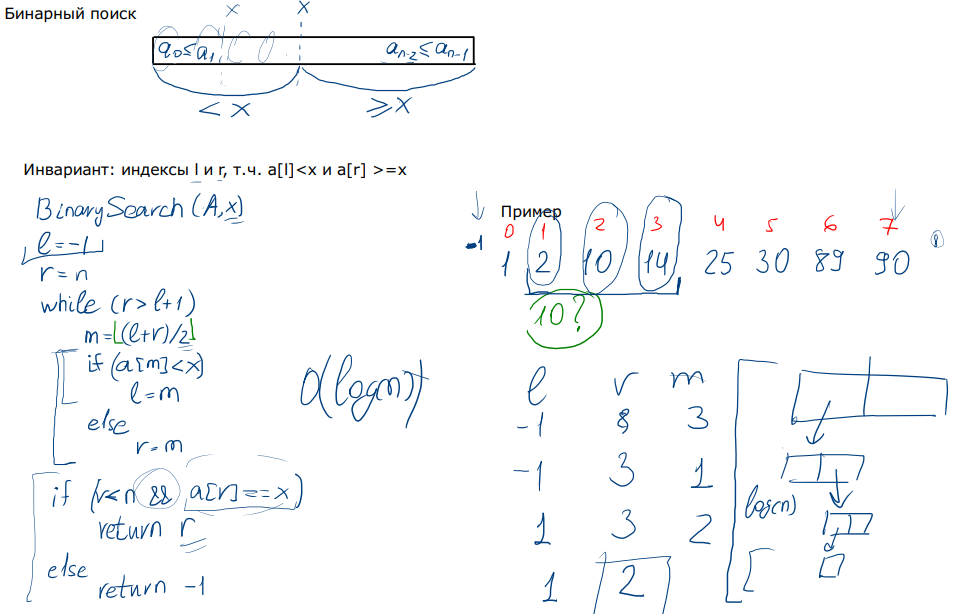 Бинарный поиск
x x
a₀≤a₁ aₙ₋₂≤aₙ₋₁
< x ≥ x
Инвариант: индексы l и r, т.ч. a[l]<x и a[r] >=x
BinarySearch (A,x)
l = -1
r = n
while (r > l+1)
m=⌊(l+r)/2⌋
if (a[m]<x)
l = m
else
r = m
if (r<n && a[r]==x)
return r
else
return -1
O(logn)
Пример
0 1 2 3 4 5 6 7
-1 1 2 10 14 25 30 89 90 8
10?
l r m
-1 8 3
-1 3 1
1 3 2
1 2
log(n)